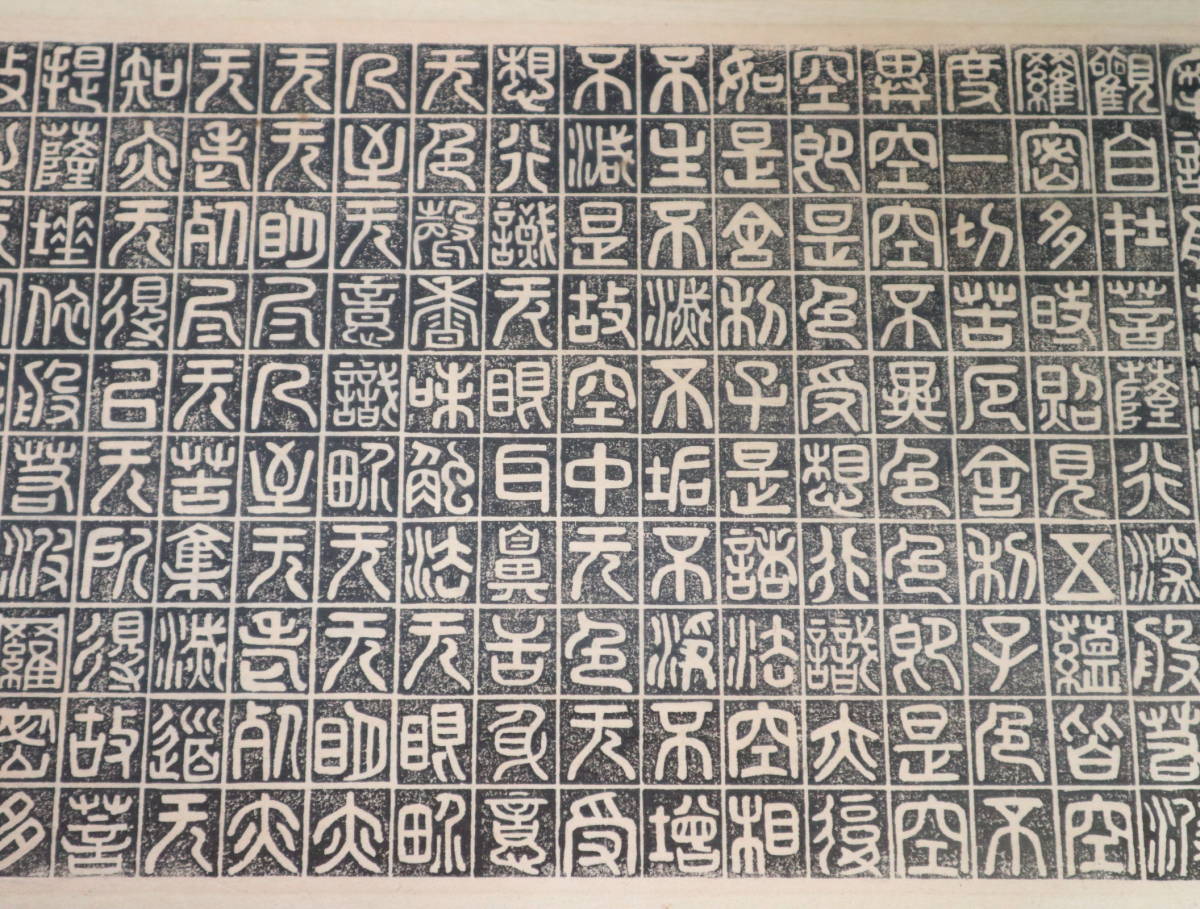 觀自在菩薩行深般若波
羅蜜多時照見五蘊皆空
度一切苦厄舍利子色不
異空空不異色色即是空
空即是色受想行識亦復
如是舍利子是諸法空相
不生不滅不垢不淨不增
不減是故空中无色无受
想行識无眼耳鼻舌身意
无色聲香味觸法无眼界
乃至无意識界无无明亦
无无明盡乃至无老死亦
无老死盡无苦集滅道无
知亦无得以无所得故菩
提薩埵依般若波羅蜜多